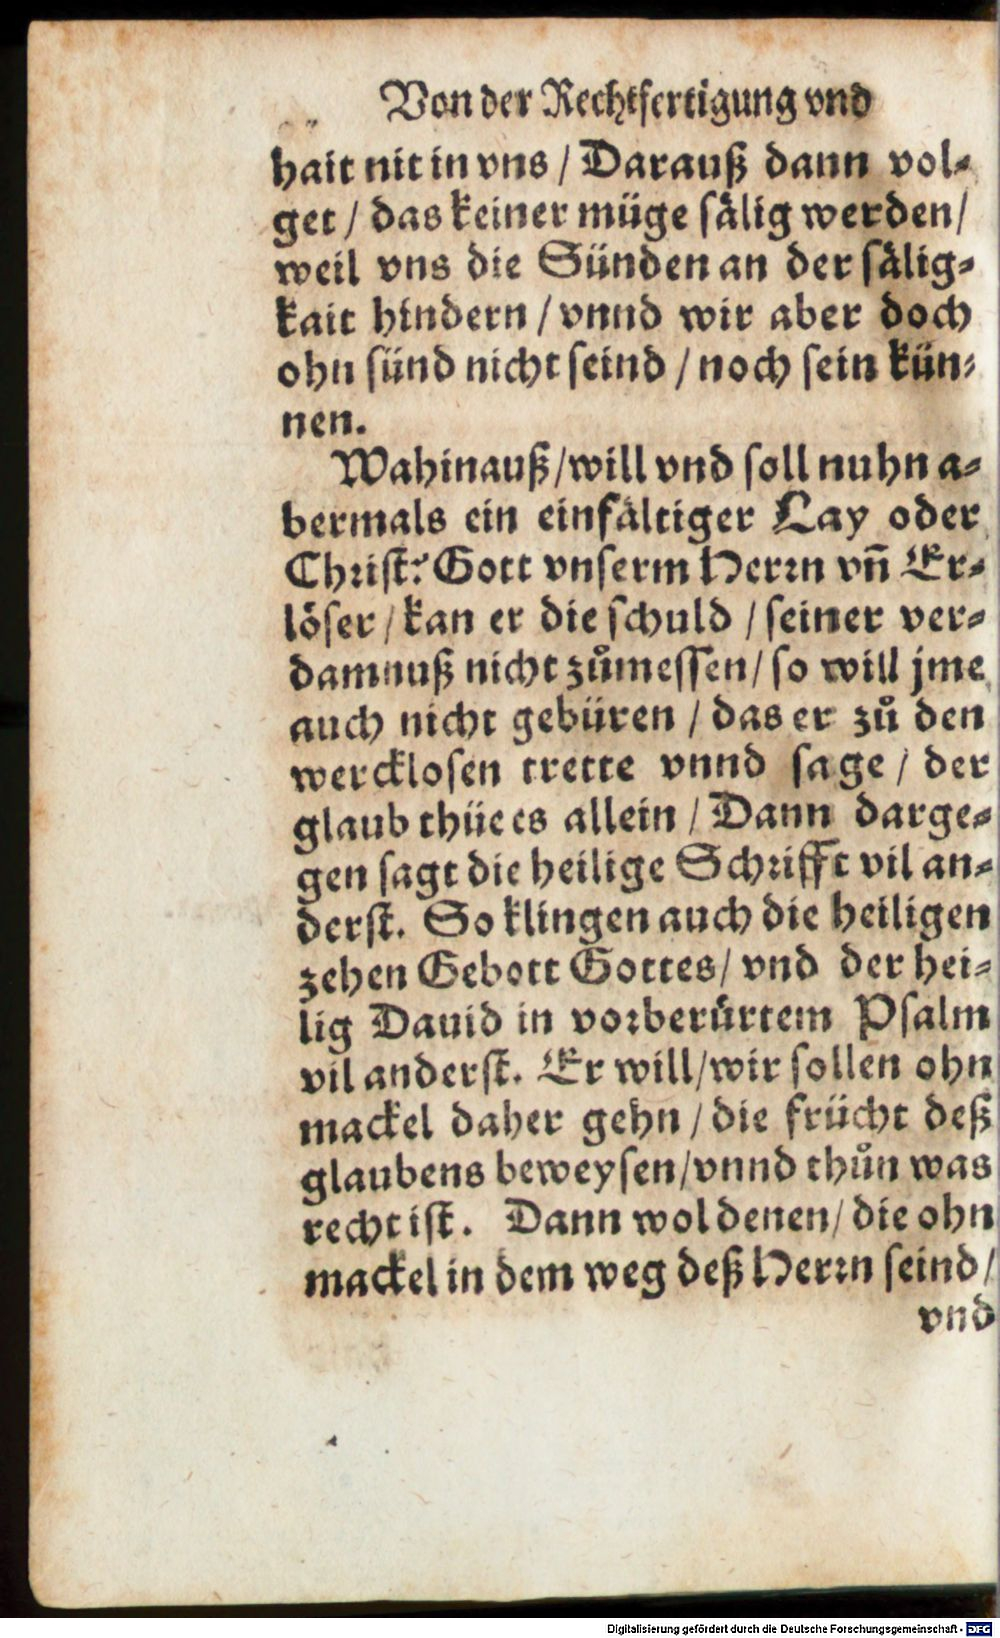 Von der Rechtfertigung vnd
hait nit in vns / Darauß dann vol⸗
get / das keiner müge sälig werden /
weil vns die Sünden an der sälig⸗
kait hindern / vnnd wir aber doch
ohn sünd nicht seind / noch sein kün⸗
nen.
Wahinauß / will vnd soll nuhn a⸗
bermals ein einfältiger Lay oder
Christ? Gott vnserm Herrn vñ Er⸗
löser / kan er die schuld / seiner ver⸗
damnuß nicht zůmessen / so will jme
auch nicht gebüren / das er zů den
wercklosen trette vnnd sage / der
glaub thüe es allein / Dann darge⸗
gen sagt die heilige Schrifft vil an⸗
derst. So klingen auch die heiligen
zehen Gebott Gottes / vnd der hei⸗
lig Dauid in vorberürtem Psalm
vil anderst. Er will / wir sollen ohn
mackel daher gehn / die frücht deß
glaubens beweysen / vnnd thůn was
recht ist. Dann wol denen / die ohn
mackel in dem weg deß Herrn seind /
vnd
Digitalisierung gefördert durch die Deutsche Forschungsgemeinschaft - DFG